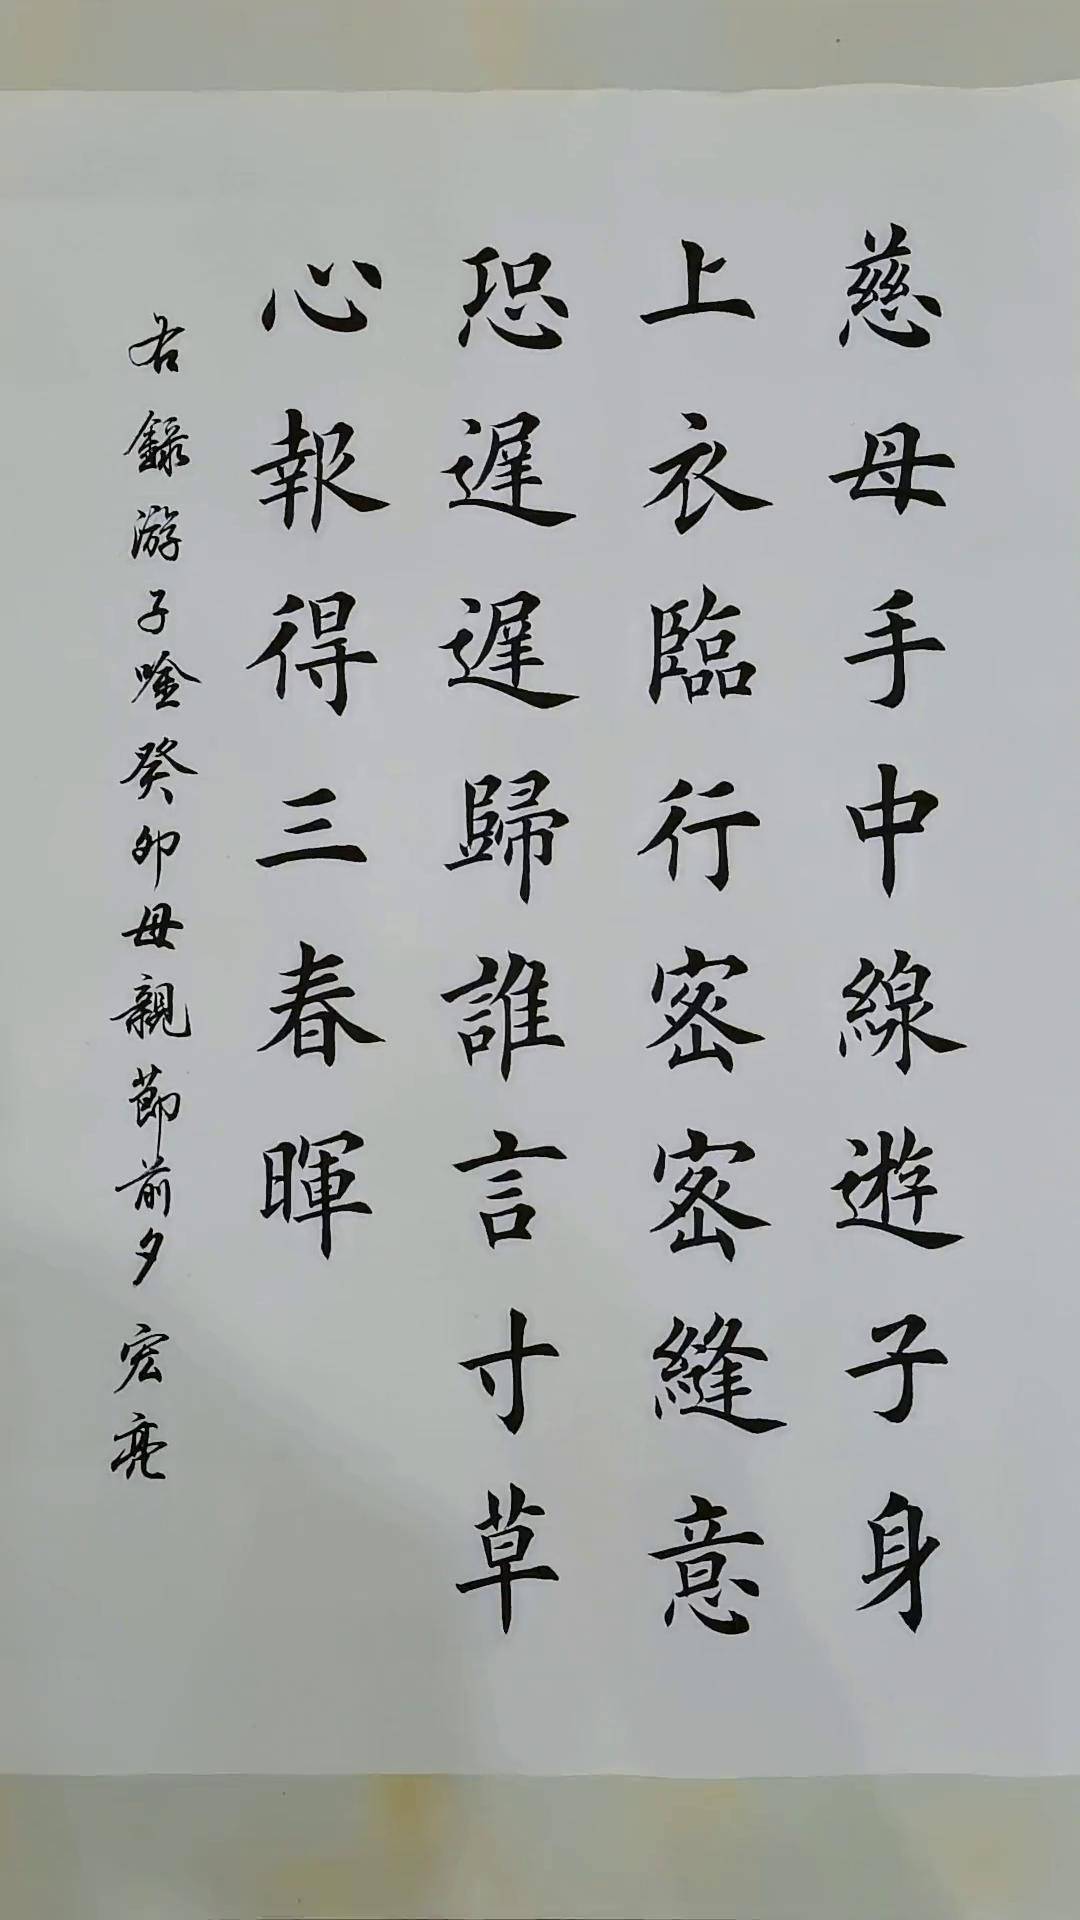 慈母手中線遊子身
上衣臨行密密縫意
恐遲遲歸誰言寸草
心報得三春暉
右錄游子唫癸卯母親節前夕宏亮